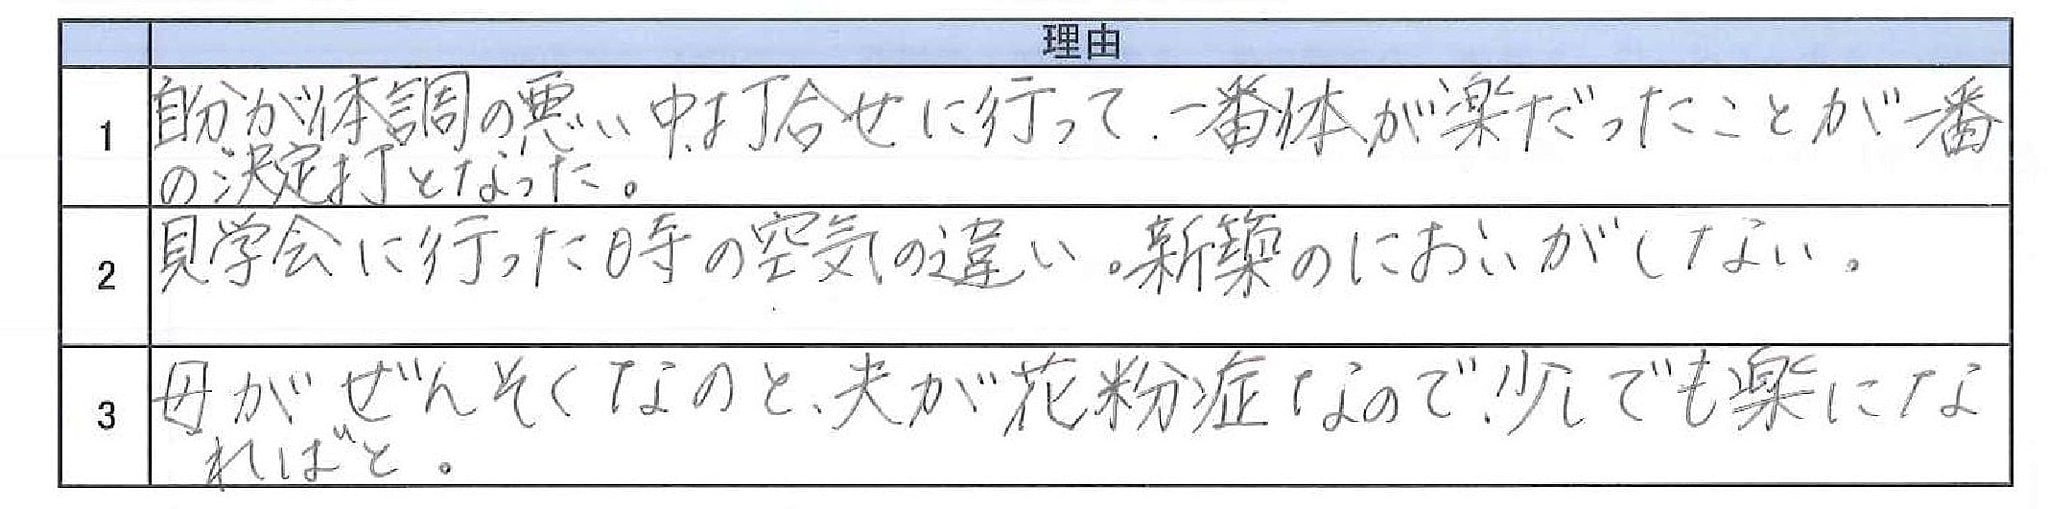 理由
1
自分が体調の悪い中、打合せに行って、一番体が楽だったことが一番
の決定打となった。
2
見学会に行った時の空気の違い。新築のにおいがしない。
3
母がぜんそくなのと、夫が花粉症なので、少しでも楽にな
ればと。